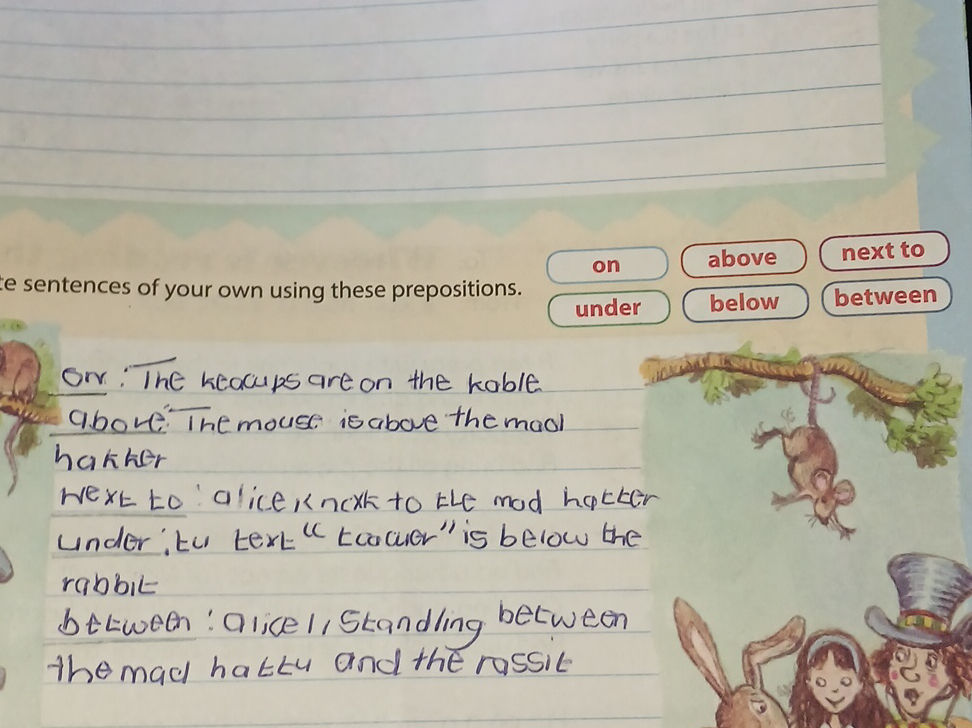 te sentences of your own using these prepositions.
on above next to
under below between
on : The keacups are on the kable
above: The mouse is above the mad
hakker
next to : alice is next to the mad hatter
under : text " " is below the
rabbit
between : alice is standling between
the mad hatter and the rassit